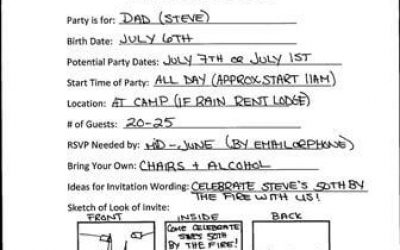 Party is for: DAD (STEVE)
Birth Date: JULY 6TH
Potential Party Dates: JULY 7TH OR JULY 1ST
Start Time of Party: ALL DAY (APPROX. START 11AM)
Location: AT CAMP (IF RAIN RENT LODGE)
# of Guests: 20-25
RSVP Needed by: MID-JUNE (BY EMAIL OR PHONE)
Bring Your Own: CHAIRS + ALCOHOL
Ideas for Invitation Wording: CELEBRATE STEVE'S 50TH BY
THE FIRE WITH US!
Sketch of Look of Invite:
FRONT INSIDE BACK
COME CELEBRATE
50TH
BY THE FIRE!